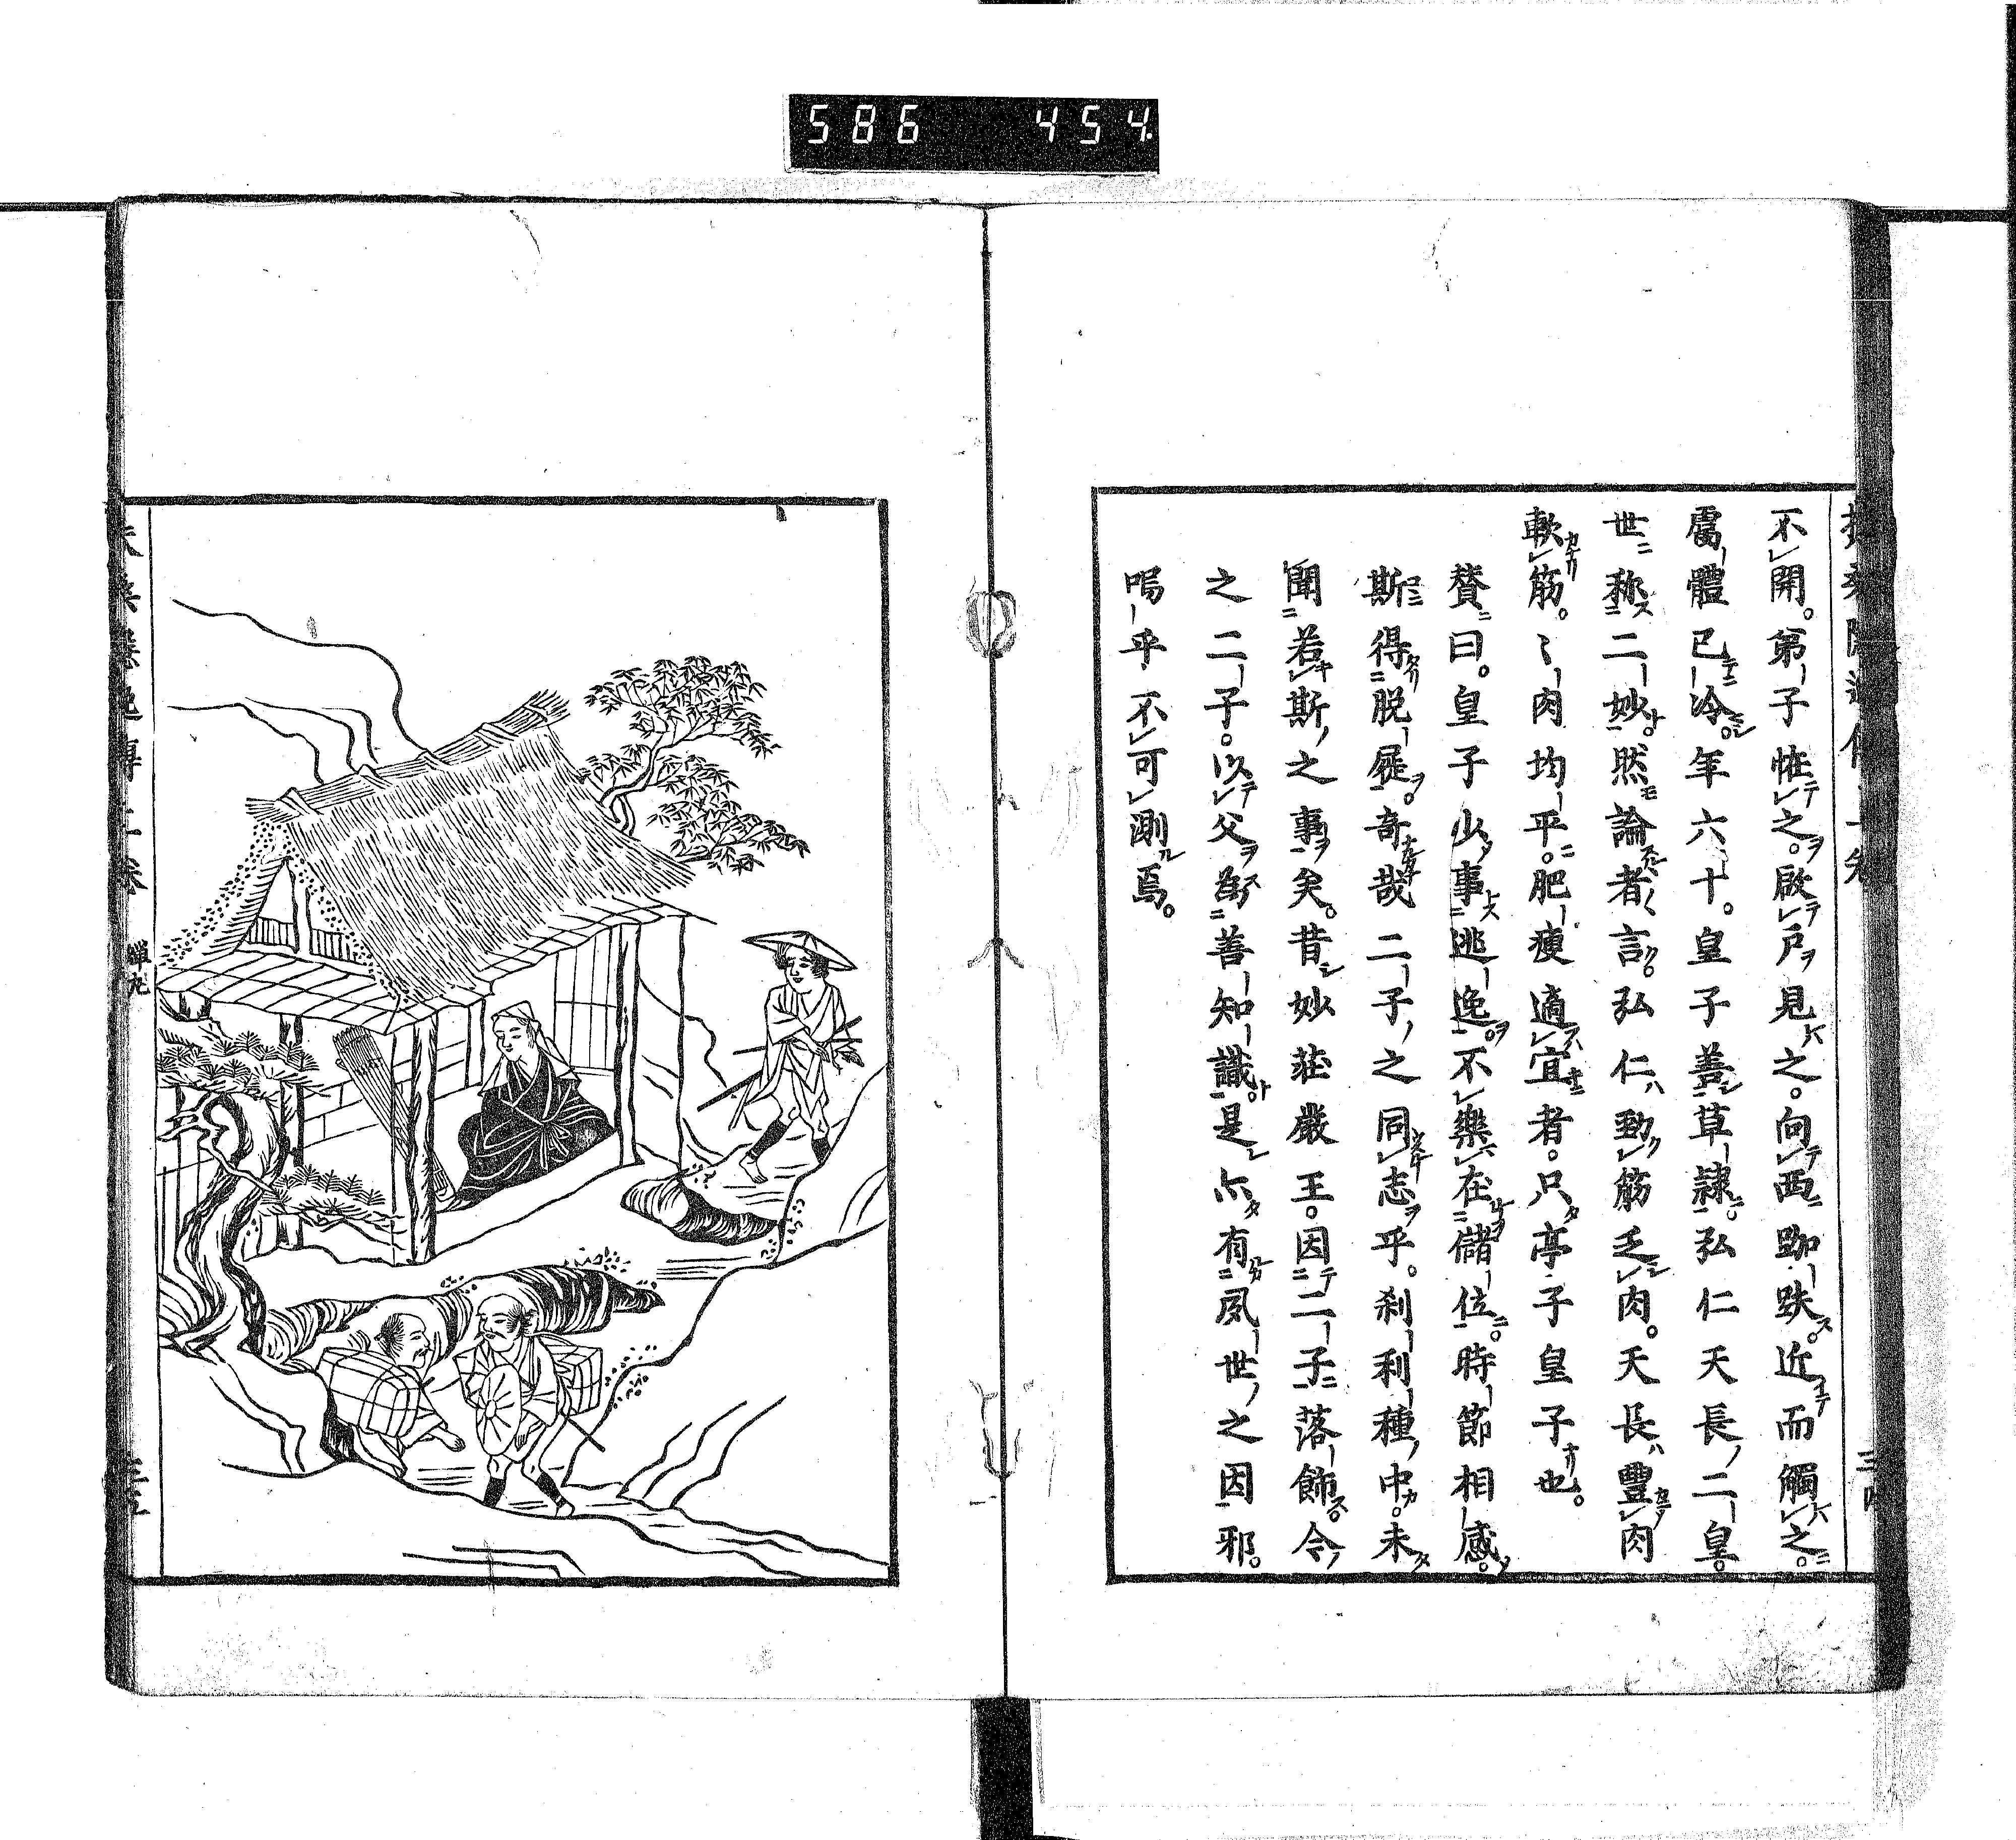 586 454
不開。第子恠之。啟戶見之。向西跏趺。近而觸之。
霱體已冷。年六十。皇子善草隷。弘仁天長二皇。
世称二妙。然論者言。弘仁勁筋乏肉。天長豐肉
軟筋。〻肉均平。肥瘦適宜者。只亭子皇子也。
賛曰。皇子少事逃逸。不樂在儲位。時節相感。
斯得脱屣。奇哉二子之同志乎。刹利種中。未
聞若斯之事矣。昔妙荘嚴王。因二子落飾。今
之二子。以父為善知識。是亦有夙世之因邪。
嗚乎不可測焉。